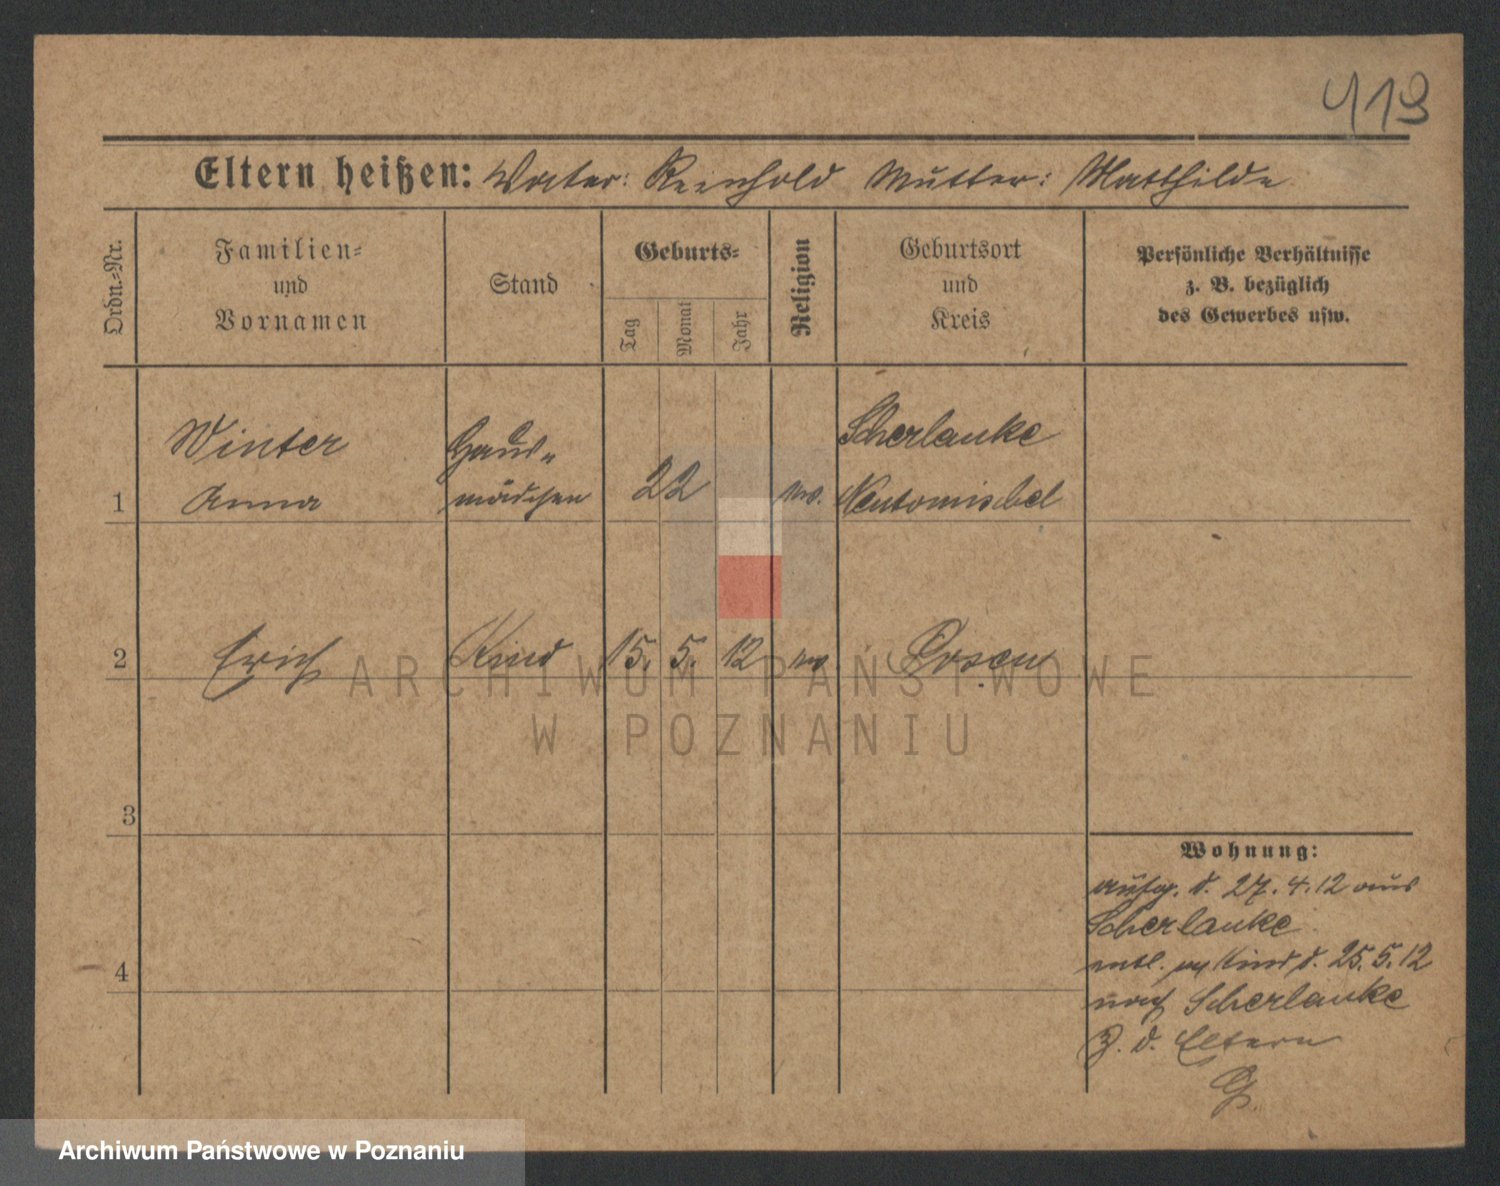 413
Eltern heißen: Vater: Reinhold Mutter: Matthilde
Ordn.-Nr.
Familien-
und
Vornamen
Stand
Geburts-
Tag
Monat
Jahr
Religion
Geburtsort
und
Kreis
Persönliche Verhältnisse
z. B. bezüglich
des Gewerbes usw.
Winter
Haus-
Scherlanke
1 Anna
mädchen
22
ev.
Neutomischel
2 Erich Kind 15. 5. 12 ev. Posen
ARCHIWUM PAŃSTWOWE
W POZNANIU
3
Wohnung:
d. 27. 4. 12 aus
Scherlanke
entl. Kind d. 25. 5. 12
4
nach Scherlanke
z. d. Eltern
G.
Archiwum Państwowe w Poznaniu